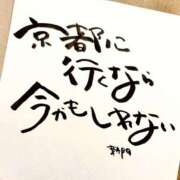 京都に
行くなら
今かもしれない